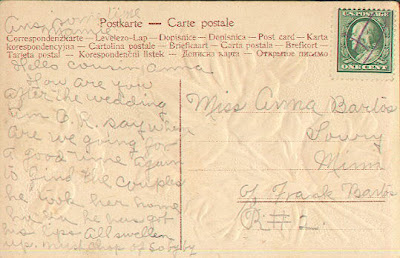 Postkarte – Carte postale
Correspondenzkarte – Levelező-Lap – Dopisnice – Dopisnica – Post card – Karta
korespondencyjna – Cartolina postale – Briefkaart – Cartao postal – Brefkort
Tarjeta postal – Korespondenční lístek –
ONE CENT
Hello Cousin Anna
How are you
after the wedding
I'm O.K. say when
are we going for
a good time again
to find the couples
he took her home
he has got
his lips all swellen
up. must chop of so by by
Miss Anna Bartos
Lowry
Minn
c/o Frank Bartos
R#2.